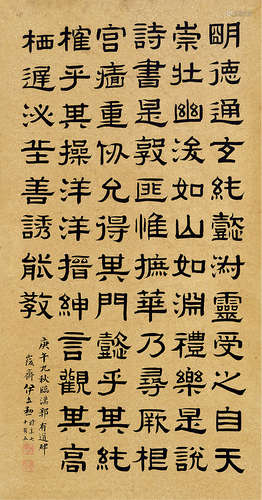 朙德通玄純懿淑靈受之自天
崇壯幽浚如山如淵禮樂是說
詩書是敦匪惟摭華乃尋厥根
宮牆重仞允得其門懿乎其純
榷乎其操洋洋搢紳言觀其高
栖遲泌丘善誘能教
庚午九秋臨漢郭有道碑
峻齋伊立勳時年七十有五